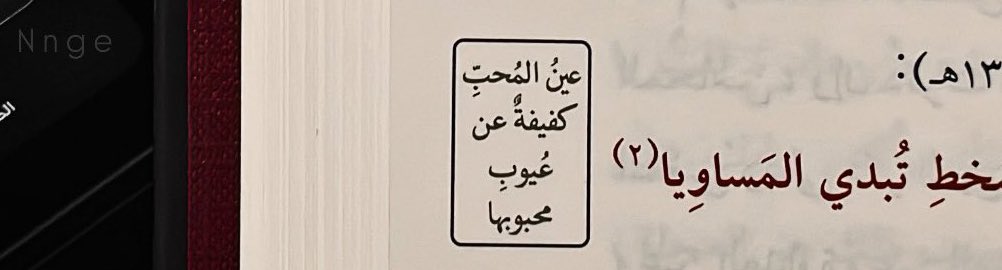 Nnge
١٣هـ):
تُبدي المَساوِيا(٢)
عينُ المُحبِّ
كفيفةٌ عن
عُيوبِ
محبوبها